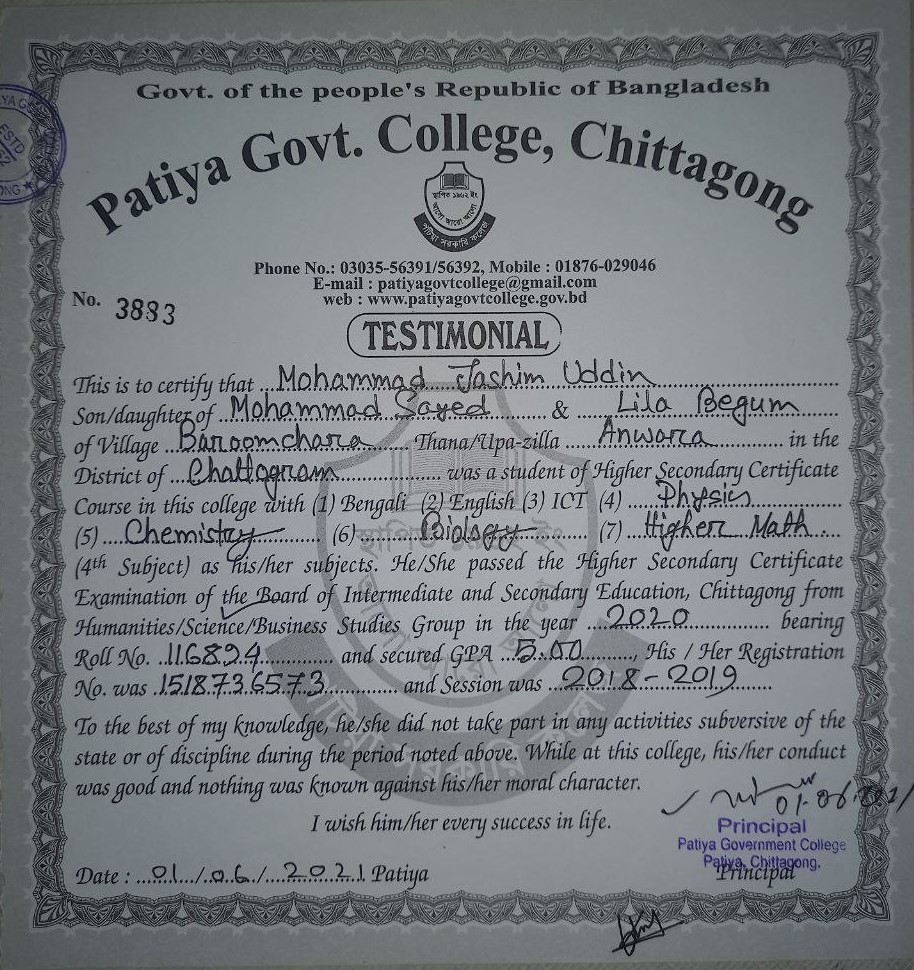 Govt. of the people's Republic of Bangladesh
Patiya Govt. College, Chittagong
স্থাপিত ১৯৬২ ইং
আলো আরো আলো
পটিয়া সরকারি কলেজ
Phone No.: 03035-56391/56392, Mobile : 01876-029046
E-mail : patiyagovtcollege@gmail.com
web : www.patiyagovtcollege.gov.bd
No. 3883
TESTIMONIAL
This is to certify that Mohammad Jashim Uddin
Son/daughter of Mohammad Sayed & Lila Begum
of Village Baroomchara Thana/Upa-zilla Anwara in the
District of Chattogram was a student of Higher Secondary Certificate
Course in this college with (1) Bengali (2) English (3) ICT (4) Physics
(5) Chemistry (6) Biology (7) Higher Math
(4th Subject) as his/her subjects. He/She passed the Higher Secondary Certificate
Examination of the Board of Intermediate and Secondary Education, Chittagong from
Humanities/Science/Business Studies Group in the year 2020 bearing
Roll No. 116894 and secured GPA 5.00, His / Her Registration
No. was 1518736573 and Session was 2018-2019
To the best of my knowledge, he/she did not take part in any activities subversive of the
state or of discipline during the period noted above. While at this college, his/her conduct
was good and nothing was known against his/her moral character.
I wish him/her every success in life.
01-06-2021
Principal
Patiya Government College
Patiya, Chittagong.
Principal
Date : 01/06/2021 Patiya